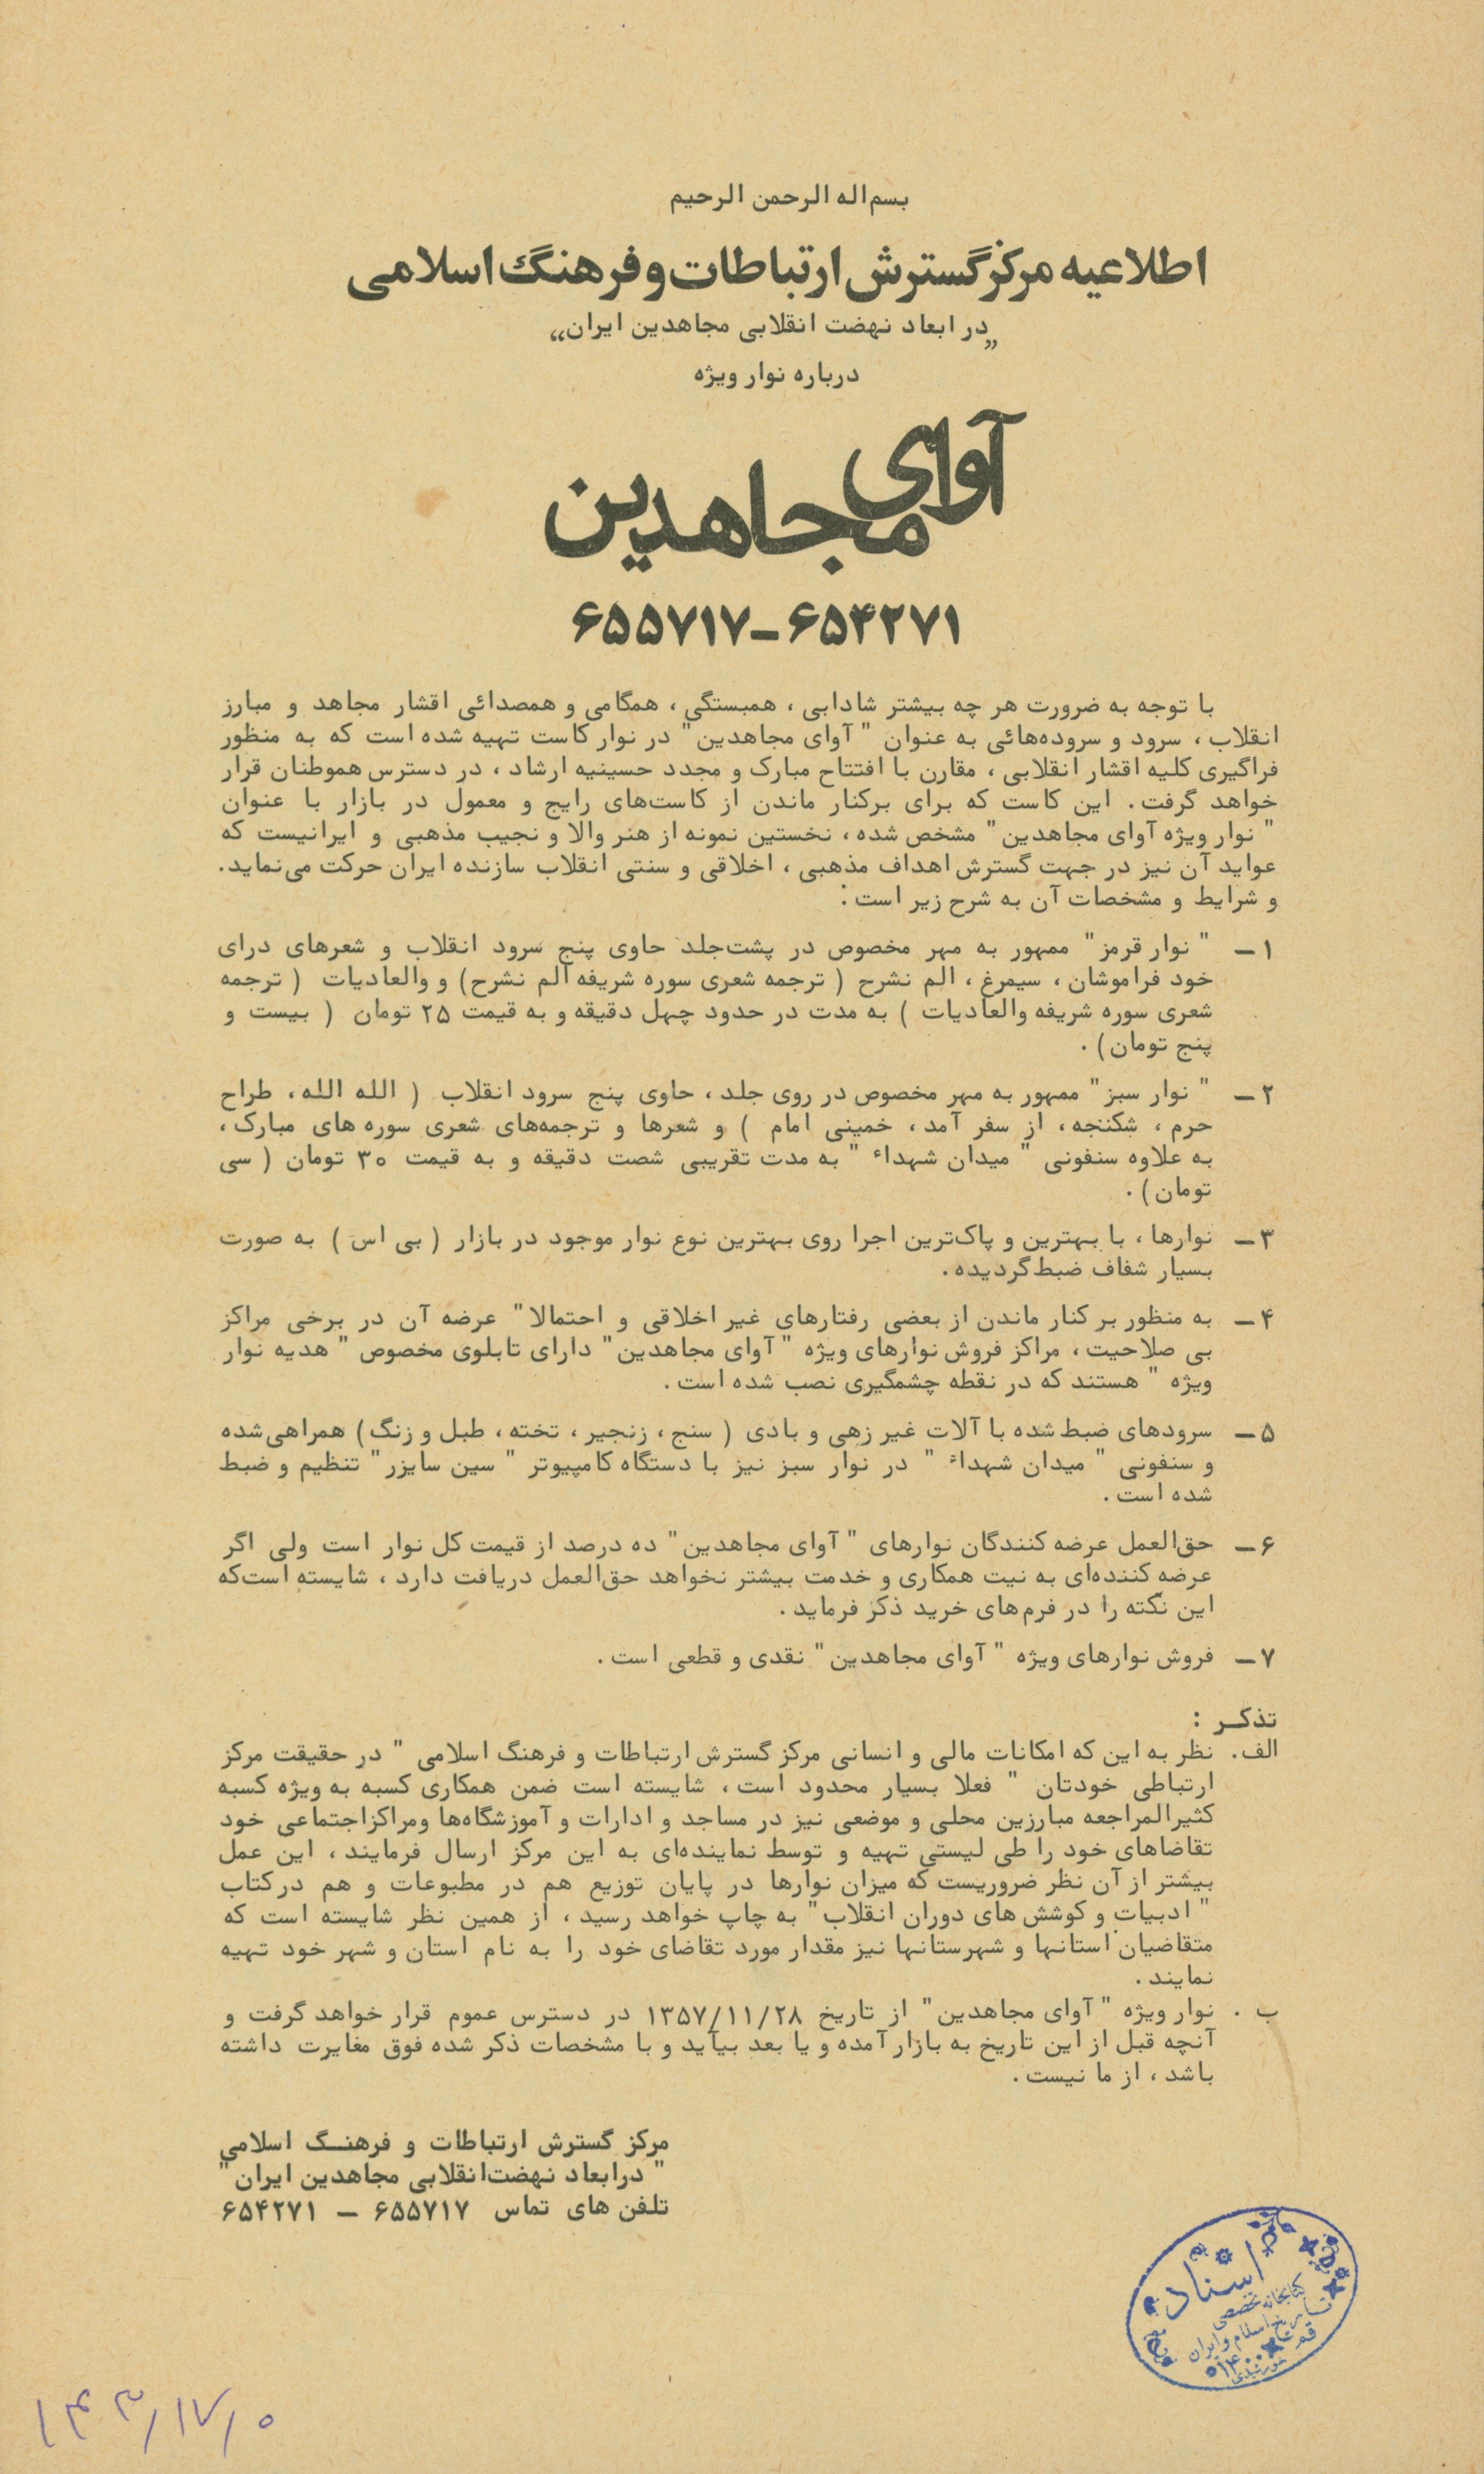 بسم‌اله الرحمن الرحیم
اطلاعیه مرکز گسترش ارتباطات و فرهنگ اسلامی
„در ابعاد نهضت انقلابی مجاهدین ایران“
درباره نوار ویژه
آوای
مجاهدین
۶۵۵۷۱۷-۶۵۴۲۷۱
با توجه به ضرورت هر چه بیشتر شادابی ، همبستگی ، همگامی و همصدائی اقشار مجاهد و مبارز
انقلاب ، سرود و سروده‌هائی به عنوان " آوای مجاهدین" در نوار کاست تهیه شده است که به منظور
فراگیری کلیه اقشار انقلابی ، مقارن با افتتاح مبارک و مجدد حسینیه ارشاد ، در دسترس هموطنان قرار
خواهد گرفت . این کاست که برای برکنار ماندن از کاست‌های رایج و معمول در بازار با عنوان
" نوار ویژه آوای مجاهدین" مشخص شده ، نخستین نمونه از هنر والا و نجیب مذهبی و ایرانیست که
عواید آن نیز در جهت گسترش اهداف مذهبی ، اخلاقی و سنتی انقلاب سازنده ایران حرکت می‌نماید.
و شرایط و مشخصات آن به شرح زیر است :
۱- " نوار قرمز" ممهور به مهر مخصوص در پشت‌جلد حاوی پنج سرود انقلاب و شعرهای درای
خود فراموشان ، سیمرغ ، الم نشرح ( ترجمه شعری سوره شریفه الم نشرح) و والعادیات ( ترجمه
شعری سوره شریفه والعادیات ) به مدت در حدود چهل دقیقه و به قیمت ۲۵ تومان ( بیست و
پنج تومان) .
۲- " نوار سبز" ممهور به مهر مخصوص در روی جلد ، حاوی پنج سرود انقلاب ( الله الله ، طراح
حرم ، شکنجه ، از سفر آمد ، خمینی امام ) و شعرها و ترجمه‌های شعری سوره های مبارک ،
به علاوه سنفونی " میدان شهداء " به مدت تقریبی شصت دقیقه و به قیمت ۳۰ تومان ( سی
تومان) .
۳- نوارها ، با بهترین و پاک‌ترین اجرا روی بهترین نوع نوار موجود در بازار ( بی اس ) به صورت
بسیار شفاف ضبط گردیده .
۴- به منظور بر کنار ماندن از بعضی رفتارهای غیر اخلاقی و احتمالا" عرضه آن در برخی مراکز
بی صلاحیت ، مراکز فروش نوارهای ویژه " آوای مجاهدین" دارای تابلوی مخصوص " هدیه نوار
ویژه " هستند که در نقطه چشمگیری نصب شده است .
۵- سرودهای ضبط شده با آلات غیر زهی و بادی ( سنج ، زنجیر ، تخته ، طبل و زنگ) همراهی‌شده
و سنفونی " میدان شهداء " در نوار سبز نیز با دستگاه کامپیوتر " سین سایزر" تنظیم و ضبط
شده است .
۶- حق‌العمل عرضه کنندگان نوارهای " آوای مجاهدین" ده درصد از قیمت کل نوار است ولی اگر
عرضه کننده‌ای به نیت همکاری و خدمت بیشتر نخواهد حق‌العمل دریافت دارد ، شایسته است‌که
این نکته را در فرم‌های خرید ذکر فرماید .
۷- فروش نوارهای ویژه " آوای مجاهدین" نقدی و قطعی است .
تذکـر :
الف. نظر به این که امکانات مالی و انسانی مرکز گسترش ارتباطات و فرهنگ اسلامی " در حقیقت مرکز
ارتباطی خودتان " فعلا بسیار محدود است ، شایسته است ضمن همکاری کسبه به ویژه کسبه
کثیرالمراجعه مبارزین محلی و موضعی نیز در مساجد و ادارات و آموزشگاه‌ها ومراکزاجتماعی خود
تقاضاهای خود را طی لیستی تهیه و توسط نماینده‌ای به این مرکز ارسال فرمایند ، این عمل
بیشتر از آن نظر ضروریست که میزان نوارها در پایان توزیع هم در مطبوعات و هم درکتاب
" ادبیات و کوشش های دوران انقلاب" به چاپ خواهد رسید ، از همین نظر شایسته است که
متقاضیان استانها و شهرستانها نیز مقدار مورد تقاضای خود را به نام استان و شهر خود تهیه
نمایند .
ب . نوار ویژه " آوای مجاهدین" از تاریخ ۱۳۵۷/۱۱/۲۸ در دسترس عموم قرار خواهد گرفت و
آنچه قبل از این تاریخ به بازار آمده و یا بعد بیآید و با مشخصات ذکر شده فوق مغایرت داشته
باشد ، از ما نیست .
مرکز گسترش ارتباطات و فرهنـگ اسلامی
" درابعاد نهضت‌انقلابی مجاهدین ایران"
تلفن های تماس ۶۵۵۷۱۷ - ۶۵۴۲۷۱
اسناد
کتابخانه تخصصی
تاریخ اسلام و ایران
قم
۱۴۳/۱۷/۰